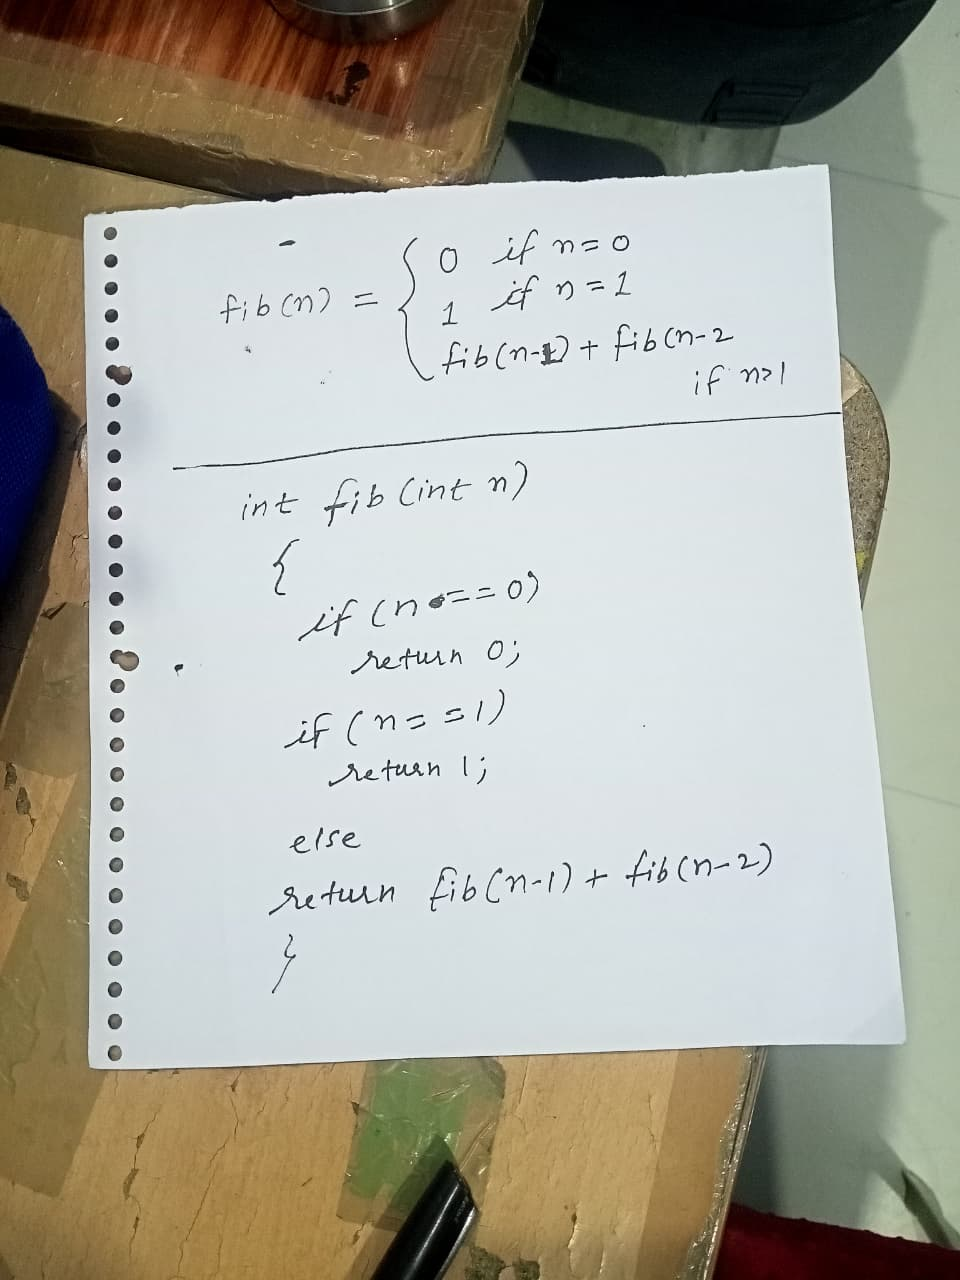 fib(n) = { 0 if n=0
1 if n=1
fib(n-1) + fib(n-2
if n>1
int fib (int n)
{
if (n == 0)
return 0;
if (n = = 1)
return 1;
else
return fib(n-1) + fib(n-2)
}